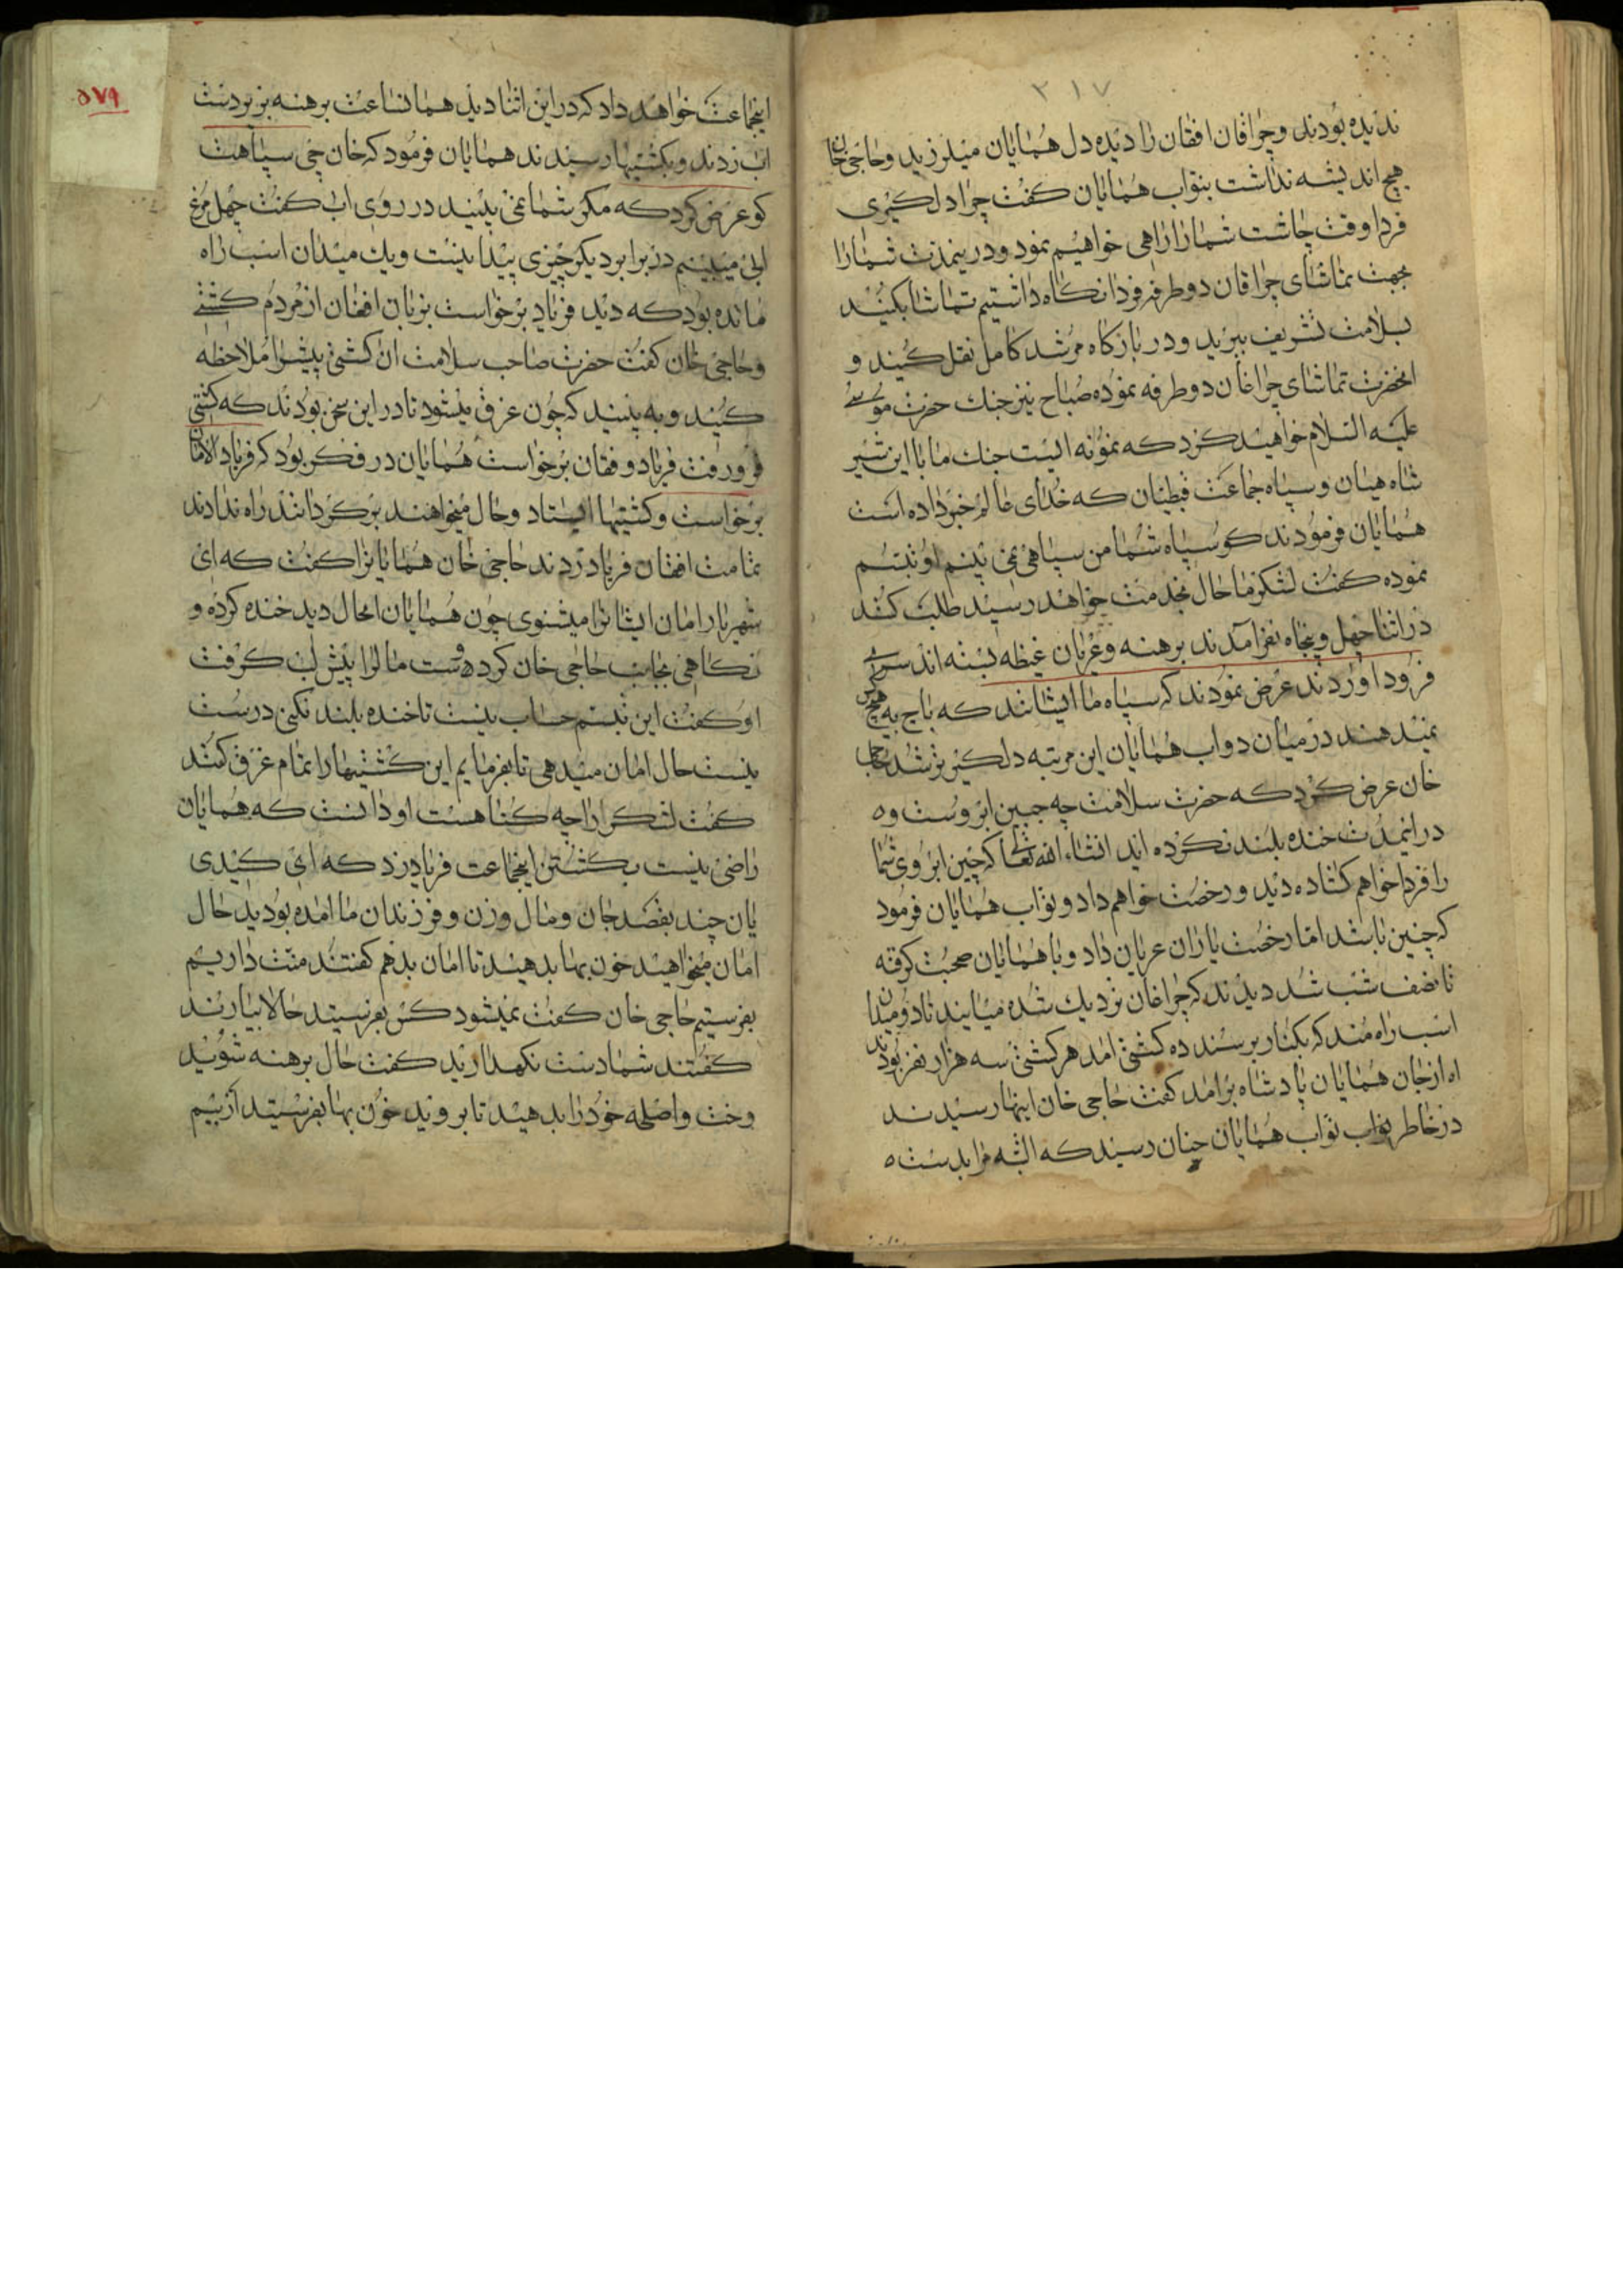 ۳۱۷
ندیده بودند و چراقان افقان را دیده دل همایان میلرزید و حاجی خان
هیچ اندیشه نداشت بنواب همایان کفت چرا دل کیری
فردا وقت چاشت شمارا راهی خواهیم نمود و درینمدت شمارا
بجهت تماشای چراقان دو طرفه فردا نکاه داشتیم تماشا بکنید
بسلامت تشریف ببرید و در بارکاه مرشد کامل نقل کنید و
انحضرت تماشای چراغان دو طرفه نموده صباح نیز جنك حضرت موسی
علیه السلام خواهید کرد که نمونه ایست جنك ما با این شیر
شاه هیان و سپاه جماعت قبطیان که خدای عالم خبر داده است
همایان فرمودند کو سپاه شما من سپاهی نمی بینم او تبسم
نموده کفت لشکر ما حال بخدمت خواهد رسید طلب کنند
در اثنا چهل و پنجاه نفر آمدند برهنه و عریان غیظه بسته اند سر
فرود اوردند عرض نمودند که سپاه ما ایشانند که باج به هیچ کس
نمیدهند در میان دو اب همایان این مرتبه دلکیرتر شد حاجی
خان عرض کرد که حضرت سلامت چه جبین ابروست و
در اینمدت خنده بلند نکرده اید انشاء الله تعالی که چین ابروی شما
را فردا خواهم کشاده دید و رخصت خواهم داد و نواب همایان فرمود
که چنین باشد اما رخصت یاران عریان داد و با همایان صحبت کرفته
تا نصف شب شد دیدند که چراغان نزدیك شده میایند تا دو میدان
اسب راه مند که بکنار برسند ده کشتی امد هر کشتی سه هزار نفر بودند
اه از جان همایان پادشاه برامد کفت حاجی خان اینها رسیدند
در خاطر نواب همایان چنان رسیند که البته مرا بدست
۵۷۹
اینجماعت خواهد داد که در این اثنا دید همانساعت برهنه بر بردست
اب زدند و بکشتیها رسیدند همایان فرمود که خان چی سپاهت
کو عرض کرد که مکر شما نمی بینید در روی اب کفت چهل مرغ
ابی میبینم در برابر دیکر چیزی پیدا نیست و یك میدان اسب راه
مانده بود که دید فریاد برخواست بزبان افغان از مردم کشتی
و حاجی خان کفت حضرت صاحب سلامت ان کشتی پیش را ملاحظه
کنید و به بینید که چون غرق میشود تا در این سخن بودند که کشتی
فرو رفت فریاد و فقان برخواست همایان در فکر بود که فریاد الامان
برخواست و کشتیها ایستاد و حال میخواهند برکردانند راه ندادند
تمامت افقان فریاد زدند حاجی خان همایانرا کفت که ای
شهریار امان ایشانرا میشنوی چون همایان انحال دید خنده کرده و
نکاهی بجانب حاجی خان کرده دست مالرا پیش لب کرفت
او کفت این تبسم حساب نیست تا خنده بلند نکنی درست
نیست حال امان میدهی تا بفرمایم این کشتیها را تمام غرق کنند
کفت لشکر را چه کناهست او دانست که همایان
راضی نیست بکشتن اینجماعت فریاد زد که ای کیدی
یان چند بقصد جان و مال و زن و فرزندان ما امده بودید حال
امان میخواهید خون بها بدهید تا امان بدهم کفتند منت داریم
بفرستیم حاجی خان کفت نمیشود کس بفرستید حالا بیارند
کفتند شما دست نکهدارید کفت حال برهنه شوید
و رخت و اصلحه خود را بدهید تا بروید خون بها بفرستید از بیم